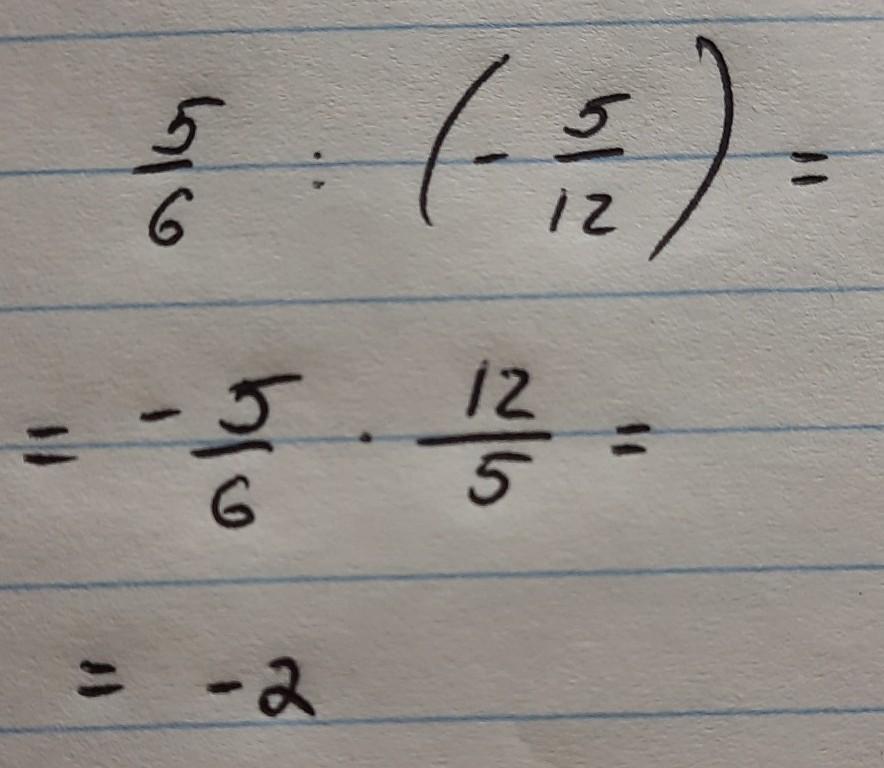 5/6 : (- 5/12) =
= - 5/6 · 12/5 =
= -2